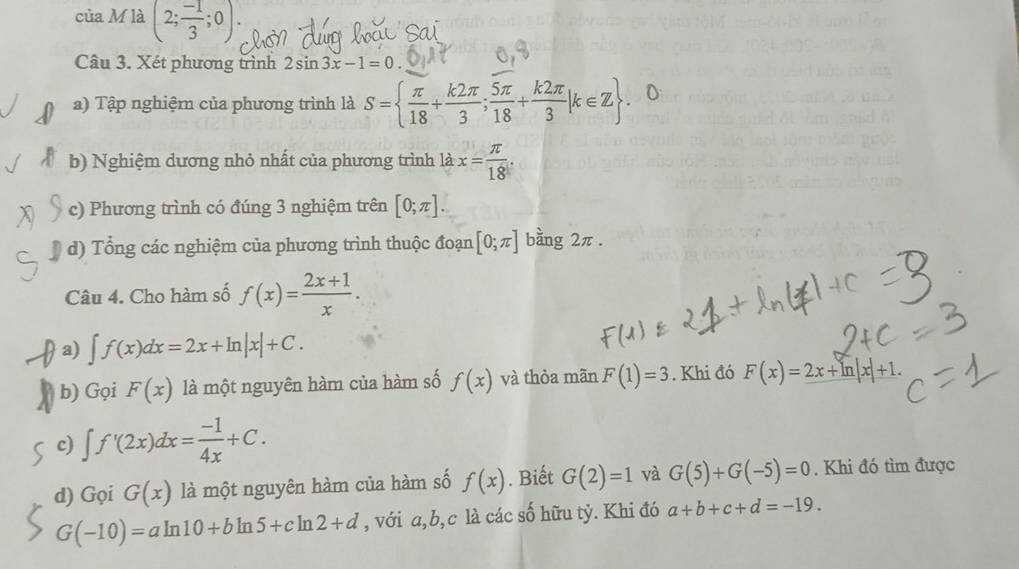 của M là (2; -1/3; 0).
chọn đúng hoặc sai
Câu 3. Xét phương trình 2 sin 3x − 1 = 0. 0,17 0,8
a) Tập nghiệm của phương trình là S = { π/18 + k2π/3 ; 5π/18 + k2π/3 | k ∈ ℤ }. Đ
b) Nghiệm dương nhỏ nhất của phương trình là x = π/18.
S c) Phương trình có đúng 3 nghiệm trên [0; π].
S d) Tổng các nghiệm của phương trình thuộc đoạn [0; π] bằng 2π.
Câu 4. Cho hàm số f(x) = (2x+1)/x.
F(1) = 21 + ln(1) + C = 3
Đ a) ∫ f(x)dx = 2x + ln|x| + C.
2 + C = 3
Đ b) Gọi F(x) là một nguyên hàm của hàm số f(x) và thỏa mãn F(1) = 3. Khi đó F(x) = 2x + ln|x| + 1.
C = 1
S c) ∫ f '(2x)dx = -1/(4x) + C.
S d) Gọi G(x) là một nguyên hàm của hàm số f(x). Biết G(2) = 1 và G(5) + G(−5) = 0. Khi đó tìm được
G(−10) = a ln 10 + b ln 5 + c ln 2 + d, với a, b, c là các số hữu tỷ. Khi đó a + b + c + d = −19.